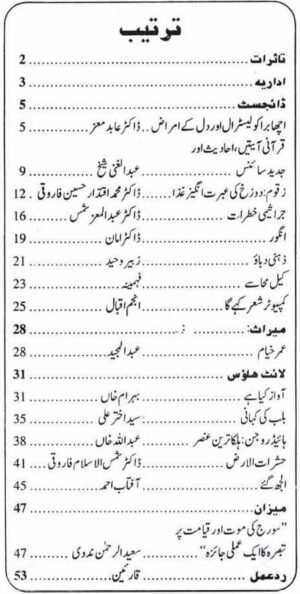 ترتیب
تاثرات ........ 2
اداریہ ........ 3
ڈائجسٹ ........ 5
اچھا برا کولیسٹرال اور دل کے امراض .. ڈاکٹر عابد معز ........ 5
قرآنی آیتیں، احادیث اور
جدید سائنس ........ عبدالغنی شیخ ........ 9
زقوم: دوزخ کی عبرت انگیز غذا ........ ڈاکٹر محمد اقتدار حسین فاروقی . 12
جراثیمی خطرات ........ ڈاکٹر عبدالمعز شمس ........ 16
انگور ........ ڈاکٹر امان ........ 19
ذہنی دباؤ ........ زبیر وحید ........ 21
کیل مہاسے ........ فہمینہ ........ 23
کمپیوٹر شعر کہے گا ........ انجم اقبال ........ 25
میراث: ........ 28
عمر خیام ........ عبدالمجید ........ 28
لائٹ ھاؤس ........ 31
آواز کیا ہے ........ بہرام خاں ........ 31
بلب کی کہانی ........ سید اختر علی ........ 35
ہائیڈروجن: ہلکا ترین عنصر ........ عبداللہ خاں ........ 38
حشرات الارض ........ ڈاکٹر شمس الاسلام فاروقی ........ 41
الجھ گئے ........ آفتاب احمد ........ 45
میزان ........ 47
”سورج کی موت اور قیامت پر
تبصرہ کا ایک عملی جائزہ“ ........ سعید الرحمٰن ندوی ........ 47
ردعمل ........ قارئین ........ 53